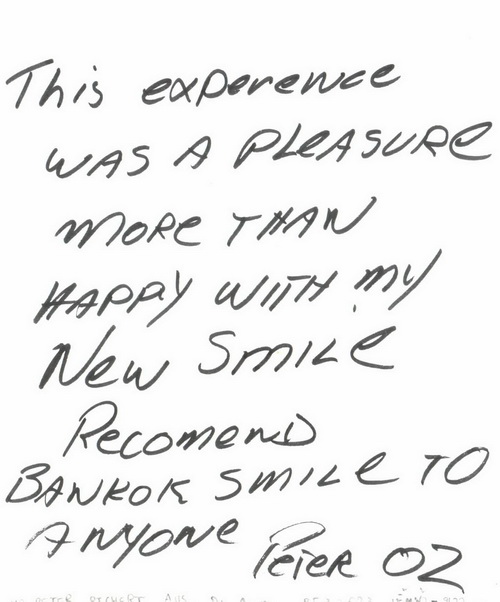 This experence
WAS A PLeASURe
more THAN
HAPPY WITH my
New SMILe
Recomend
BANKOK SMILe TO
ANYONe
PeTeR OZ